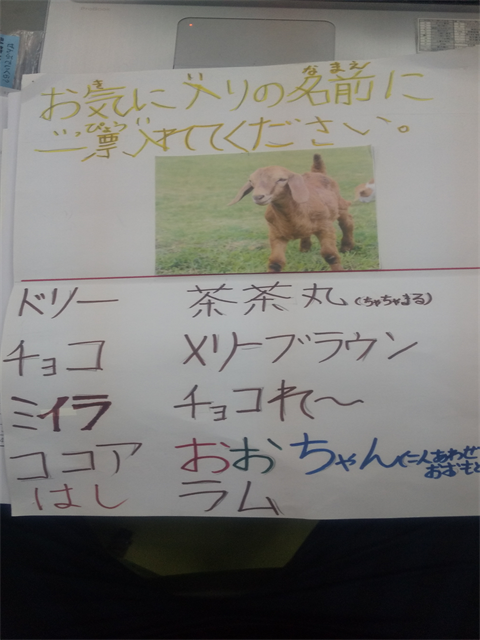 お気に入りの名前に
一票入れてください。
ドリー 茶茶丸(ちゃちゃまる)
チョコ メリーブラウン
ミイラ チョコれて〜
ココア おおちゃん(二人あわせ
おおもと
はし ラム